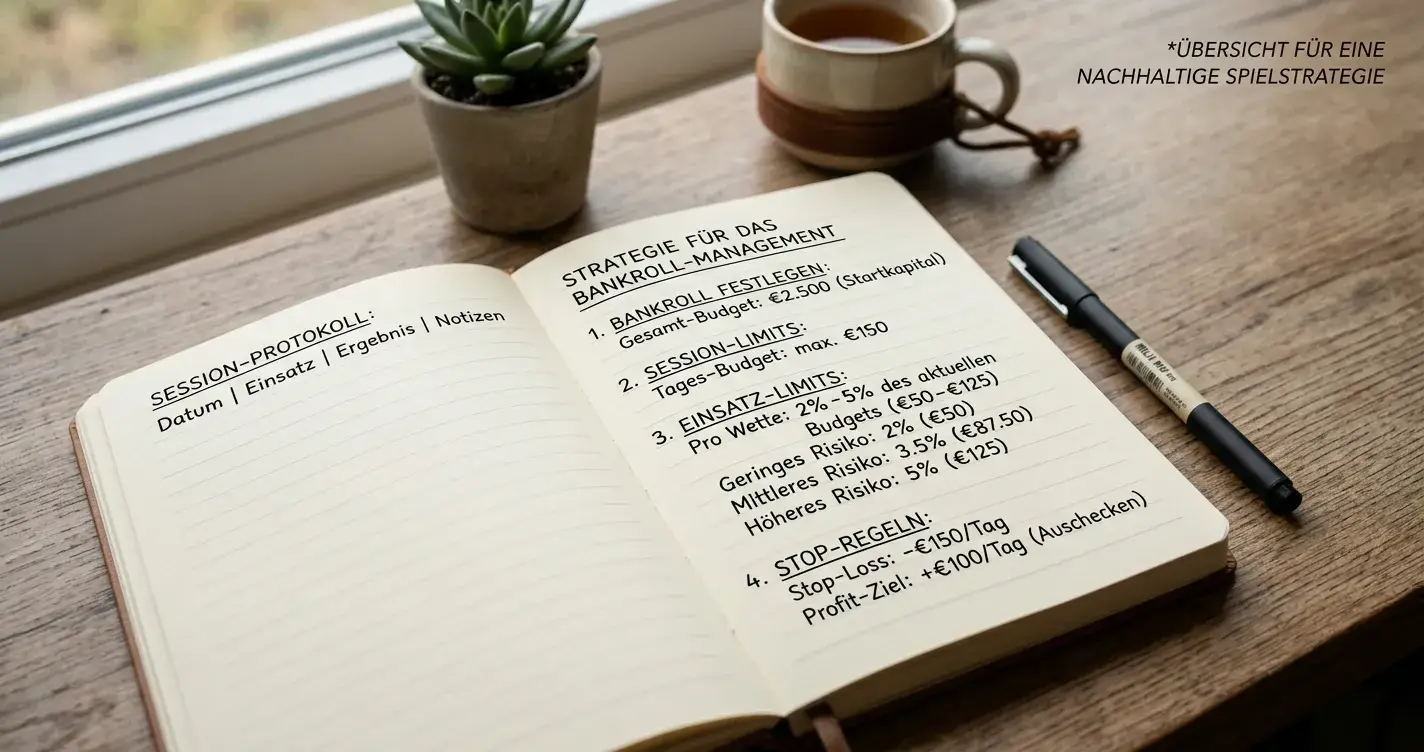 *ÜBERSICHT FÜR EINE
NACHHALTIGE SPIELSTRATEGIE
SESSION-PROTOKOLL:
Datum | Einsatz | Ergebnis | Notizen
STRATEGIE FÜR DAS
BANKROLL-MANAGEMENT
1. BANKROLL FESTLEGEN:
Gesamt-Budget: €2.500 (Startkapital)
2. SESSION-LIMITS:
Tages-Budget: max. €150
3. EINSATZ-LIMITS:
Pro Wette: 2%-5% des aktuellen
Budgets (€50-€125)
Geringes Risiko: 2% (€50)
Mittleres Risiko: 3.5% (€87.50)
Höheres Risiko: 5% (€125)
4. STOP-REGELN:
Stop-Loss: -€150/Tag
Profit-Ziel: +€100/Tag (Auschecken)